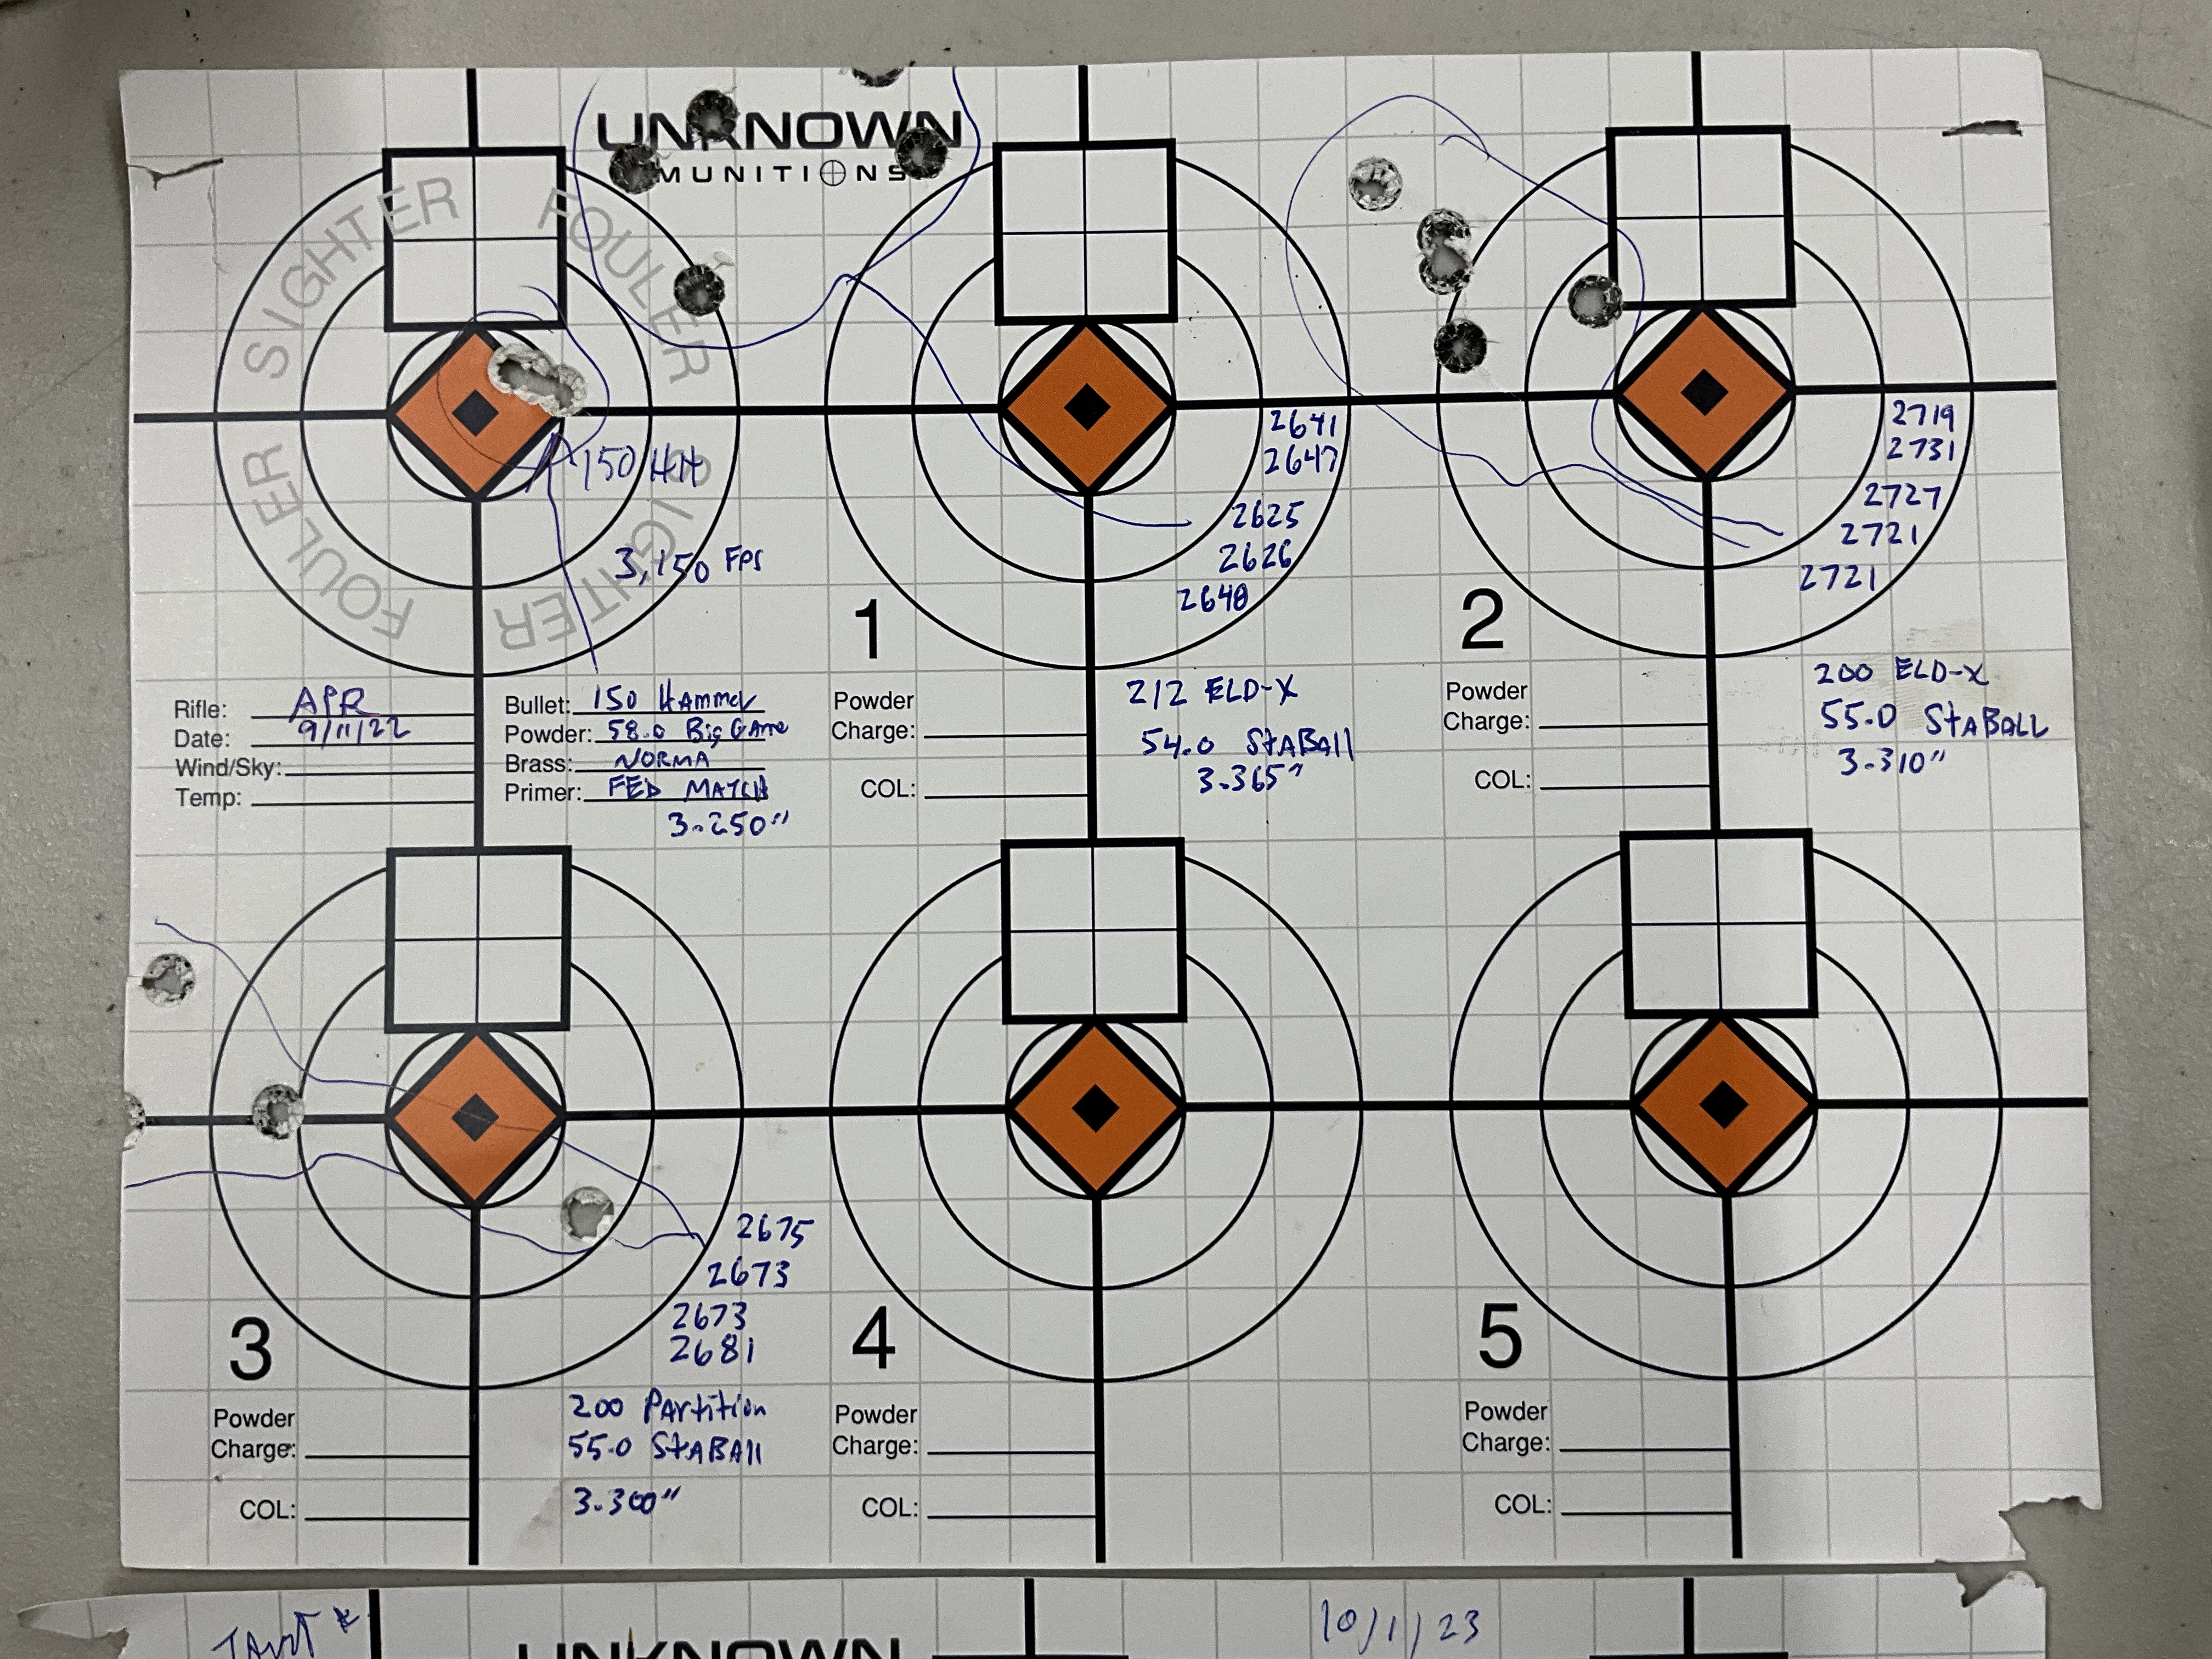 UNKNOWN
MUNITIONS
SIGHTER
FOULER
SIGHTER
FOULER
150 HH
3,150 FPS
2641
2647
2625
2626
2640
2719
2731
2727
2721
2721
1
2
Rifle: APR
Date: 9/11/22
Wind/Sky:
Temp:
Bullet: 150 Hammer
Powder: 58.0 Big Game
Brass: NORMA
Primer: FED MATCH
3.250"
Powder
Charge:
COL:
212 ELD-X
54.0 StaBall
3.365"
Powder
Charge:
COL:
200 ELD-X
55.0 StaBALL
3.310"
2675
2673
2673
2681
3
4
5
Powder
Charge:
COL:
200 Partition
55.0 StaBAll
3.300"
Powder
Charge:
COL:
Powder
Charge:
COL:
10/1/23
UNKNOWN